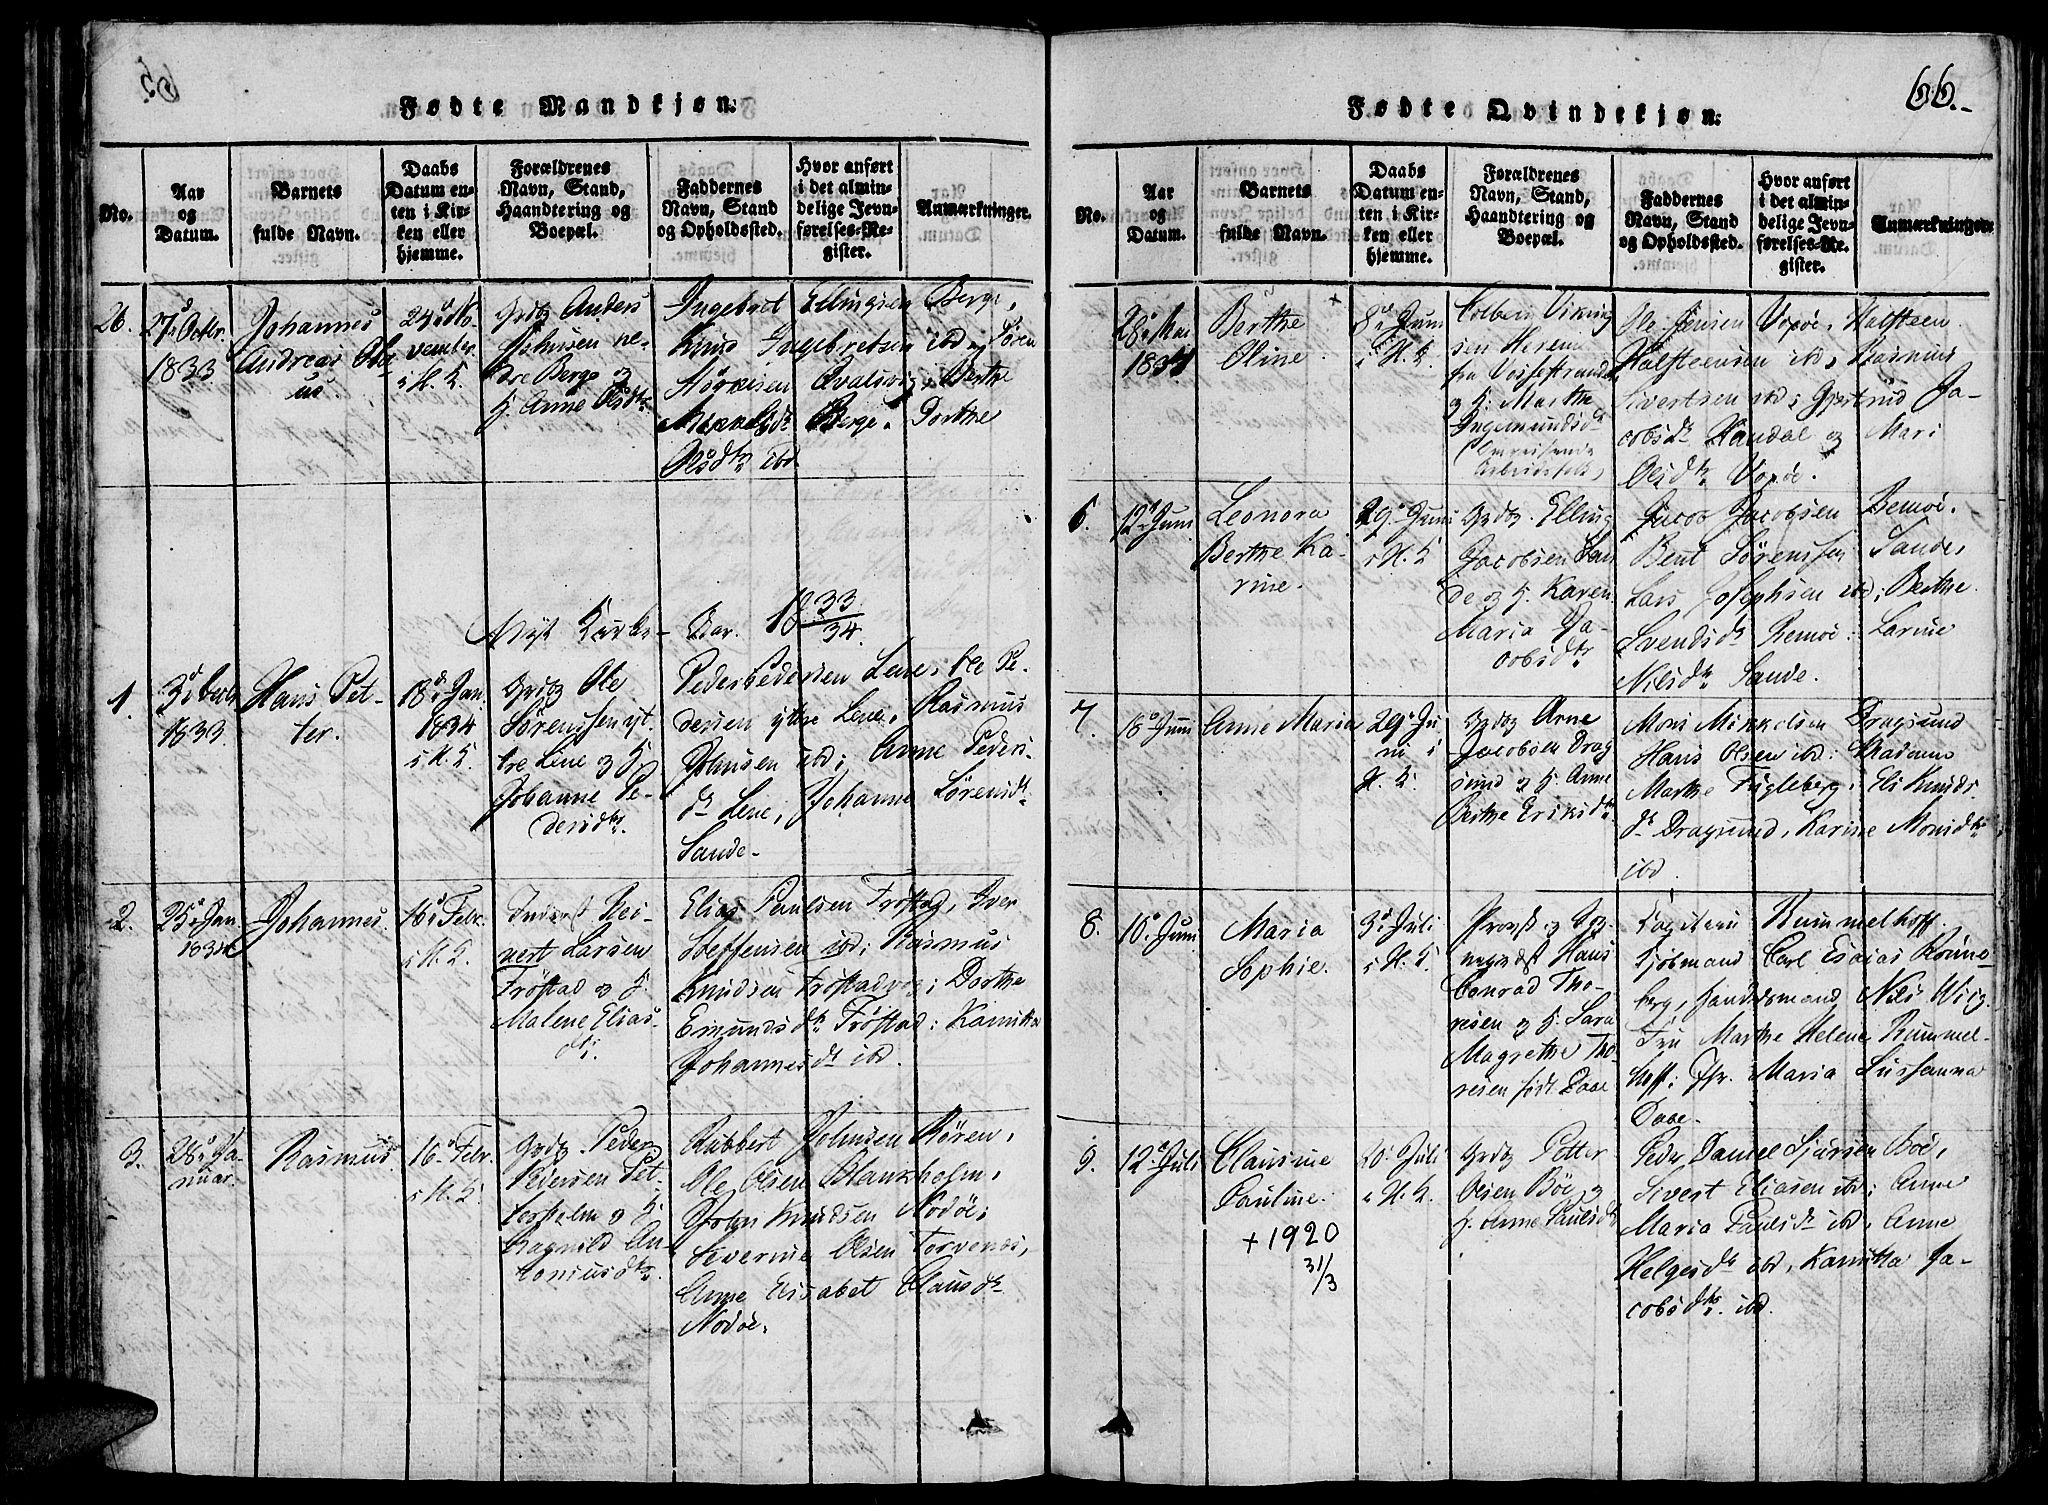 66.
Fødte Mandkjøn.
No.
Aar og Datum.
Barnets fulde Navn.
Daabs Datum enten i Kirken eller hjemme.
Forældrenes Navn, Stand, Haandtering og Boepæl.
Faddernes Navn, Stand og Opholdssted.
Hvor anført i det almindelige Jevnførelses-Register.
Anmærkninger.
26.
27d Octbr.
1833
Johannes
Andreas
24d No-
vember
i H. K.
Grdbg Anders
ne-
dre Berge og
H. Anne Olsdtr.
Ingebrot Ellingsen Berge,
Knud Ingebretsen ibd; Søren
Qvalsvig; Berthe
Berge. Dorthe
Olsdtr ibd.
Nyt Kirke-Aar. 1833/34.
1.
1833.
Hans Pet-
ter.
18d Jan.
1834
i H. K.
Grdbg Ole
Sørenssen yt-
tre Leine og H.
Johanne Pe-
dersdtr.
Peder Pedersen Leine, Ole Pe-
dersen yttre Leine, Rasmus
Hansen ibd; Anne Peders-
dtr Leine, Johanne Sørensdtr
Sande.
2.
25d Jan.
1834
Johannes.
16d Febr.
i H. K.
Inderst Rei-
nert Larsen
Frøstad og H.
Malene Elias-
dtr.
Elias Paulsen Frøstad, Iver
Steffensen ibd; Rasmus
Knudsen Frøstadvog; Dorthe
Emundsdtr Frøstad; Kanutta
Johannesdtr ibd.
3.
28d Ja-
nuar.
Rasmus.
16d Febr.
i H. K.
Grdbg Peder
Pedersen Pet-
terholm og H.
Ragnild An-
toniusdtr.
Rabbert Johnsen Røren,
Ole Olsen Blankholm,
John Knudsen Nødøe;
Severine Olsen Torvenæs,
Anne Elisabet Clausdtr
Nødøe.
Fødte Qvindekjøn.
No.
Aar og Datum.
Barnets fulde Navn.
Daabs Datum enten i Kirken eller hjemme.
Forældrenes Navn, Stand, Haandtering og Boepæl.
Faddernes Navn, Stand og Opholdssted.
Hvor anført i det almindelige Jevnførelses-Register.
Anmærkninger.
28d Mai
1834
Berthe
Oline.
8d Juni
i H. K.
Colben Viking
sen
fra Vossestranden
og H. Marthe
Ingemundsdtr
Omreisende
Arbeidsfolk
Ole Jensen Voxøe, Halsteen
Halsteensen ibd, Rasmus
Sivertsen ibd; Gjertrud Ja-
cobsdtr Handal og Mari
Olsdtr Voxøe.
6.
12d Juni
Leonora
Berthe Ka-
rine.
29d Juni
i H. K
Grdbg. Elling
Jacobsen San-
de og H. Karen
Maria Ja-
cobsdtr
Jacob Jacobsen Remøe.
Bent Sørenssen Sande,
Lars Josephsen ibd; Berthe
Svendsdtr Remøe; Larine
Nilsdtr Sande.
7.
18d Juni
Anne Maria
29d Ju-
ni i
H. K.
Grdbg Arne
Jacobsen Drag-
sund og H. Anne
Berthe Eriksdtr.
Mons Mikkelsen Dragsund
Hans Olsen ibd: Madame
Marthe Fugleberg, Eli Knuds-
dtr Dragsund, Karine Monsdtr
ibd.
8.
10d Juni
Maria
Sophie.
3d Juli
i H. K.
Provst og Sog-
neprdst Hans
Conrad Tho-
resen og H. Sara
Magrethe Tho-
resen født Daae
Capitein Rummelhoff.
Kjøbmand Carl Esaias Rønne-
berg, Handelsmand Nils Wiig.
Fru Marthe Helene Rummel-
hoff; Jfr. Maria Sussanna
Daae.
9.
12d Juli
Clausine
Pauline.
+ 1920
31/3
20d Juli
i H. K.
Grdbg Petter
Olsen Bøe og
H. Anne Paulsdtr
Peder Daniel Sjursen Bøe,
Sivert Eliasen ibd; Anne
Maria Paulsdtr ibd, Anne
Helgesdtr ibd, Kanutta Ja-
cobsdtr. ibd.